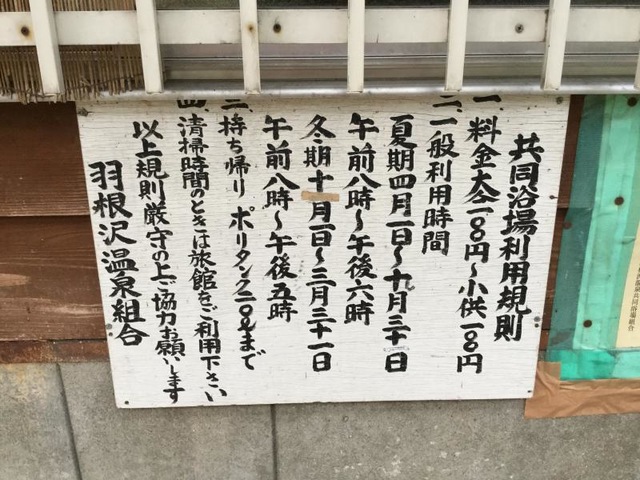 共同浴場利用規則
一、料金大人一〇〇円〜小供一〇〇円
二、一般利用時間
夏期四月一日〜九月三十日
午前八時〜午後六時
冬期十月一日〜三月三十一日
午前八時〜午後五時
三、持ち帰りポリタンク二〇ℓまで
四、清掃時間のときは旅館をご利用下さい
以上規則厳守の上ご協力お願いします
羽根沢温泉組合